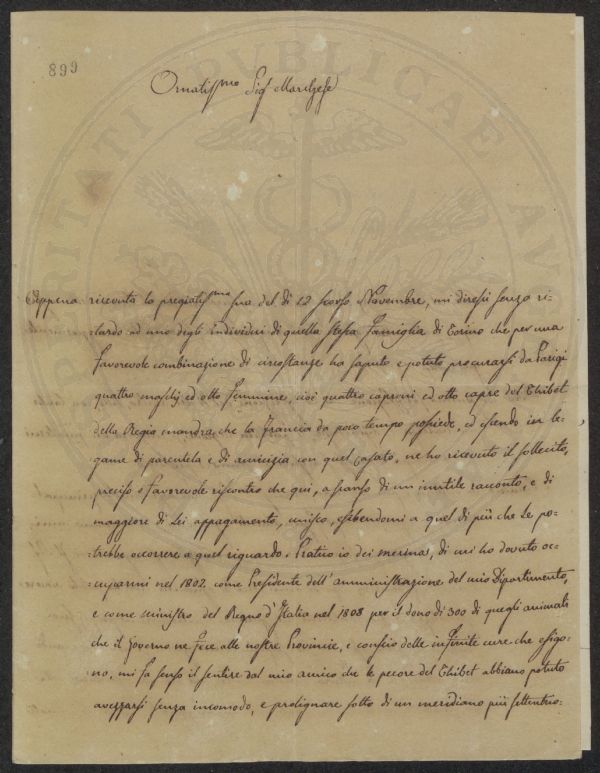 899
Ornatiss.mo Sig.r Marchese
Appena ricevuta la pregiatiss.ma sua del dì 12 scorso Novembre, mi diressi senza ri-
tardo ad uno degli individui di quella stessa famiglia di Torino che per una
favorevole combinazione di circostanze ha saputo e potuto procurarsi da Parigi
quattro maschj ed otto femmine, cioè quattro caproni ed otto capre del Thibet
della Regia mandra che la Francia da poco tempo possiede, ed essendo in le-
game di parentela e di amicizia con quel Casato, ne ho ricevuto il sollecito,
preciso e favorevole riscontro che qui, a scanso di un inutile racconto, e di
maggiore di Lei appagamento, unisco, esibendomi a quel di più che le po-
trebbe occorrere a quel riguardo. Pratico io dei merinos, di cui ho dovuto oc-
cuparmi nel 1802. come Presidente dell'amministrazione del mio Dipartimento,
e come ministro del Regno d'Italia nel 1808 per il dono di 300 di quegli animali
che il Governo ne fece alle nostre Provincie, e conscio delle infinite cure che esiggo-
no, mi fa senso il sentire dal mio amico che le pecore del Thibet abbiano potuto
avezzarsi senza incomodo, e prolignare sotto di un meridiano più settentrio-
PUBLICAE